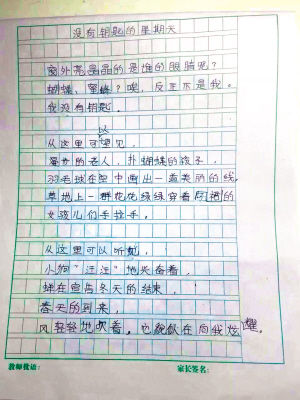 没有钥匙的星期天
窗外亮晶晶的是谁的眼睛呢?
蝴蝶、蜜蜂?唉,反正不是我。
我没有钥匙。
从这里可以望见,
的老人,扑蝴蝶的孩子,
羽毛球在空中画出一道美丽的线,
草地上一群花花绿绿穿着裙的
女孩儿们手拉手。
从这里可以听见,
小狗“汪汪”地兴奋着,
蝉在宣告冬天的结束,
春天的到来,
风轻轻地吹着,也貌似在向我炫耀。
教师批语: 家长签名: